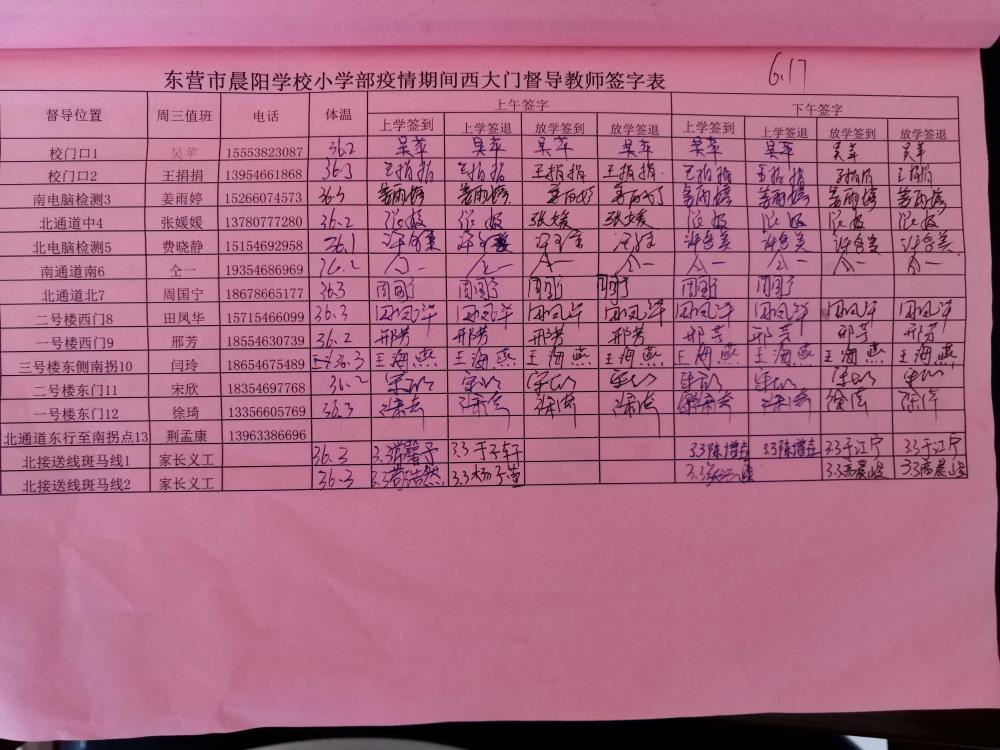 东营市晨阳学校小学部疫情期间西大门督导教师签字表 6.17
督导位置 周三值班 电话 体温 上午签字 下午签字
上学签到 上学签退 放学签到 放学签退 上学签到 上学签退 放学签到 放学签退
校门口1 吴苹 15553823087 36.2 吴苹 吴苹 吴苹 吴苹 吴苹 吴苹 吴苹 吴苹
校门口2 王捐捐 13954661868 36.3 王捐捐 王捐捐 王捐捐 王捐捐 王捐捐 王捐捐 王捐捐 王捐捐
南电脑检测3 姜雨婷 15266074573 36.3 姜雨婷 姜雨婷 姜雨婷 姜雨婷 姜雨婷 姜雨婷 姜雨婷 姜雨婷
北通道中4 张媛媛 13780777280 36.2 张媛 张媛 张媛 张媛 张媛 张媛 张媛 张媛
北电脑检测5 费晓静 15154692958 36.1
南通道南6 仝一 19354686969 36.2 仝一 仝一 仝一 仝一 仝一 仝一 仝一 仝一
北通道北7 周国宁 18678665177 36.3 周国宁 周国宁 周国宁 周国宁 周国宁 周国宁
二号楼西门8 田凤华 15715466099 36.3 田凤华 田凤华 田凤华 田凤华 田凤华 田凤华 田凤华 田凤华
一号楼西门9 邢芳 18554630739 36.2 邢芳 邢芳 邢芳 邢芳 邢芳 邢芳 邢芳 邢芳
三号楼东侧南拐10 闫玲 18654675489 36.3 王海燕 王海燕 王海燕 王海燕 王海燕 王海燕 王海燕 王海燕
二号楼东门11 宋欣 18354697768 36.2 宋欣 宋欣 宋欣 宋欣 宋欣 宋欣 宋欣 宋欣
一号楼东门12 徐琦 13356605769 36.3
北通道东行至南拐点13 荆孟康 13963386696
北接送线斑马线1 家长义工 36.3 3.3 3.3于子轩 3.3陈增在 3.3陈增在 3.3于江宁 3.3于江宁
北接送线斑马线2 家长义工 36.3 3.3 3.3杨子萱 3.3 3.3高晨峻 3.3高晨峻